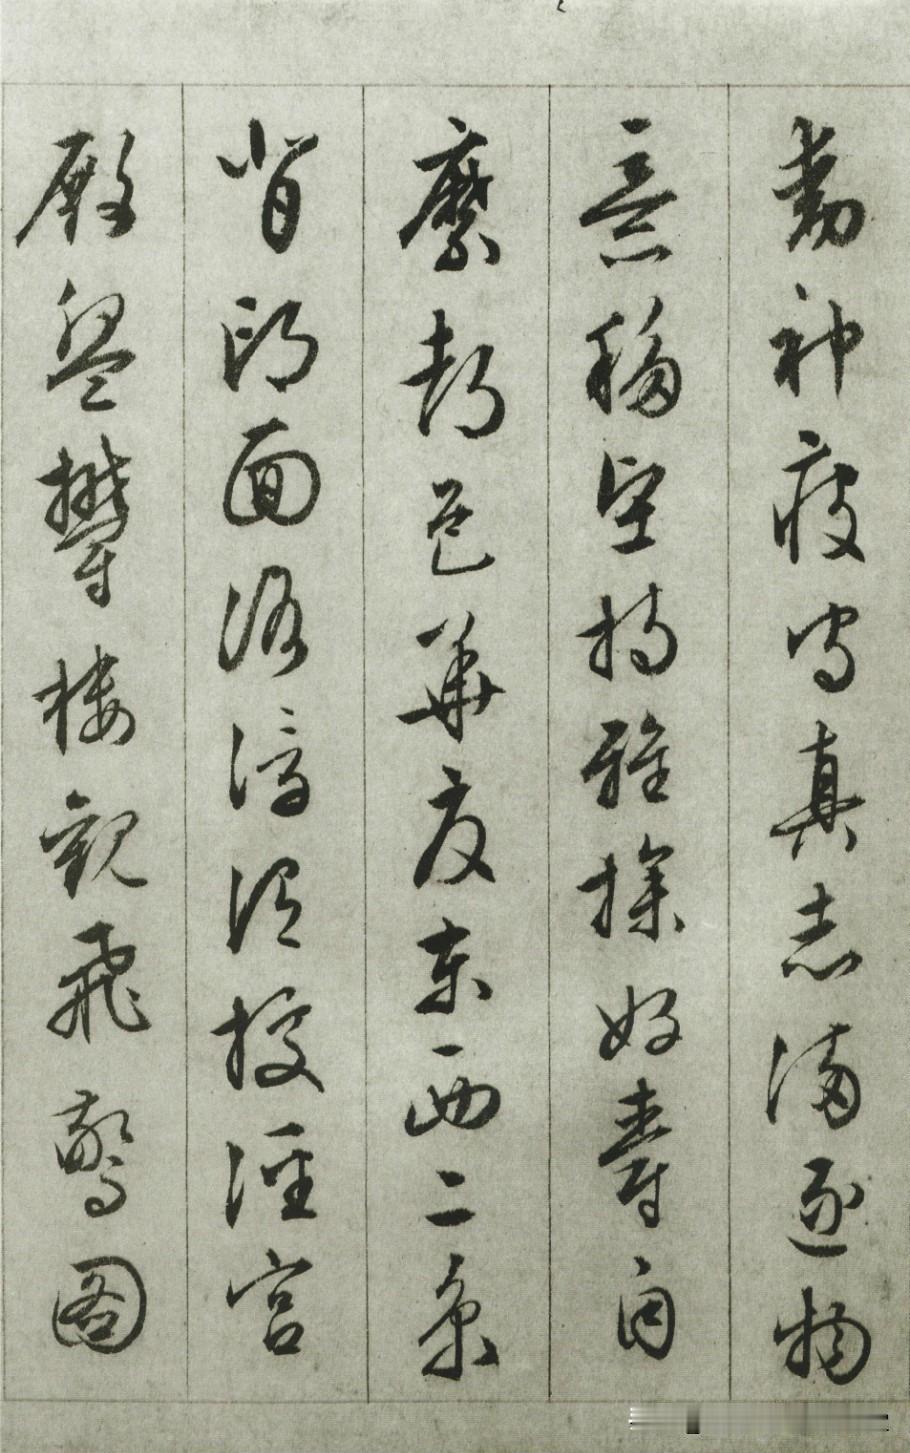 動神疲守真志滿逐物
意移堅持雅操好爵自
縻都邑華夏東西二京
背邙面洛浮渭據涇宮
殿盤鬱樓觀飛驚圖